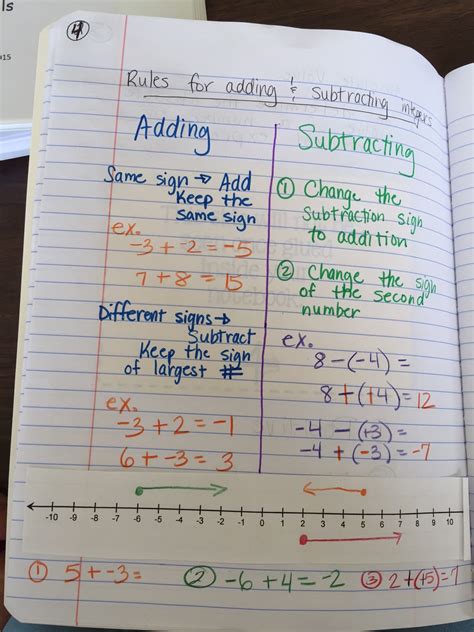 ls
015
4
Rules for adding & subtracting integers
Adding
Same sign → Add
Keep the
same sign
ex.
-3 + -2 = -5
7 + 8 = 15
Different signs →
Subtract
Keep the sign
of largest #
ex.
-3 + 2 = -1
6 + -3 = 3
Subtracting
① Change the
Subtraction sign
to addition
② Change the sign
of the second
number
ex.
8 - (-4) =
8 + (+4) = 12
-4 - (+3) =
-4 + (-3) = -7
-10 -9 -8 -7 -6 -5 -4 -3 -2 -1 0 1 2 3 4 5 6 7 8 9 10
① 5 + -3 =
② -6 + 4 = -2
③ 2 + (+5) = 7